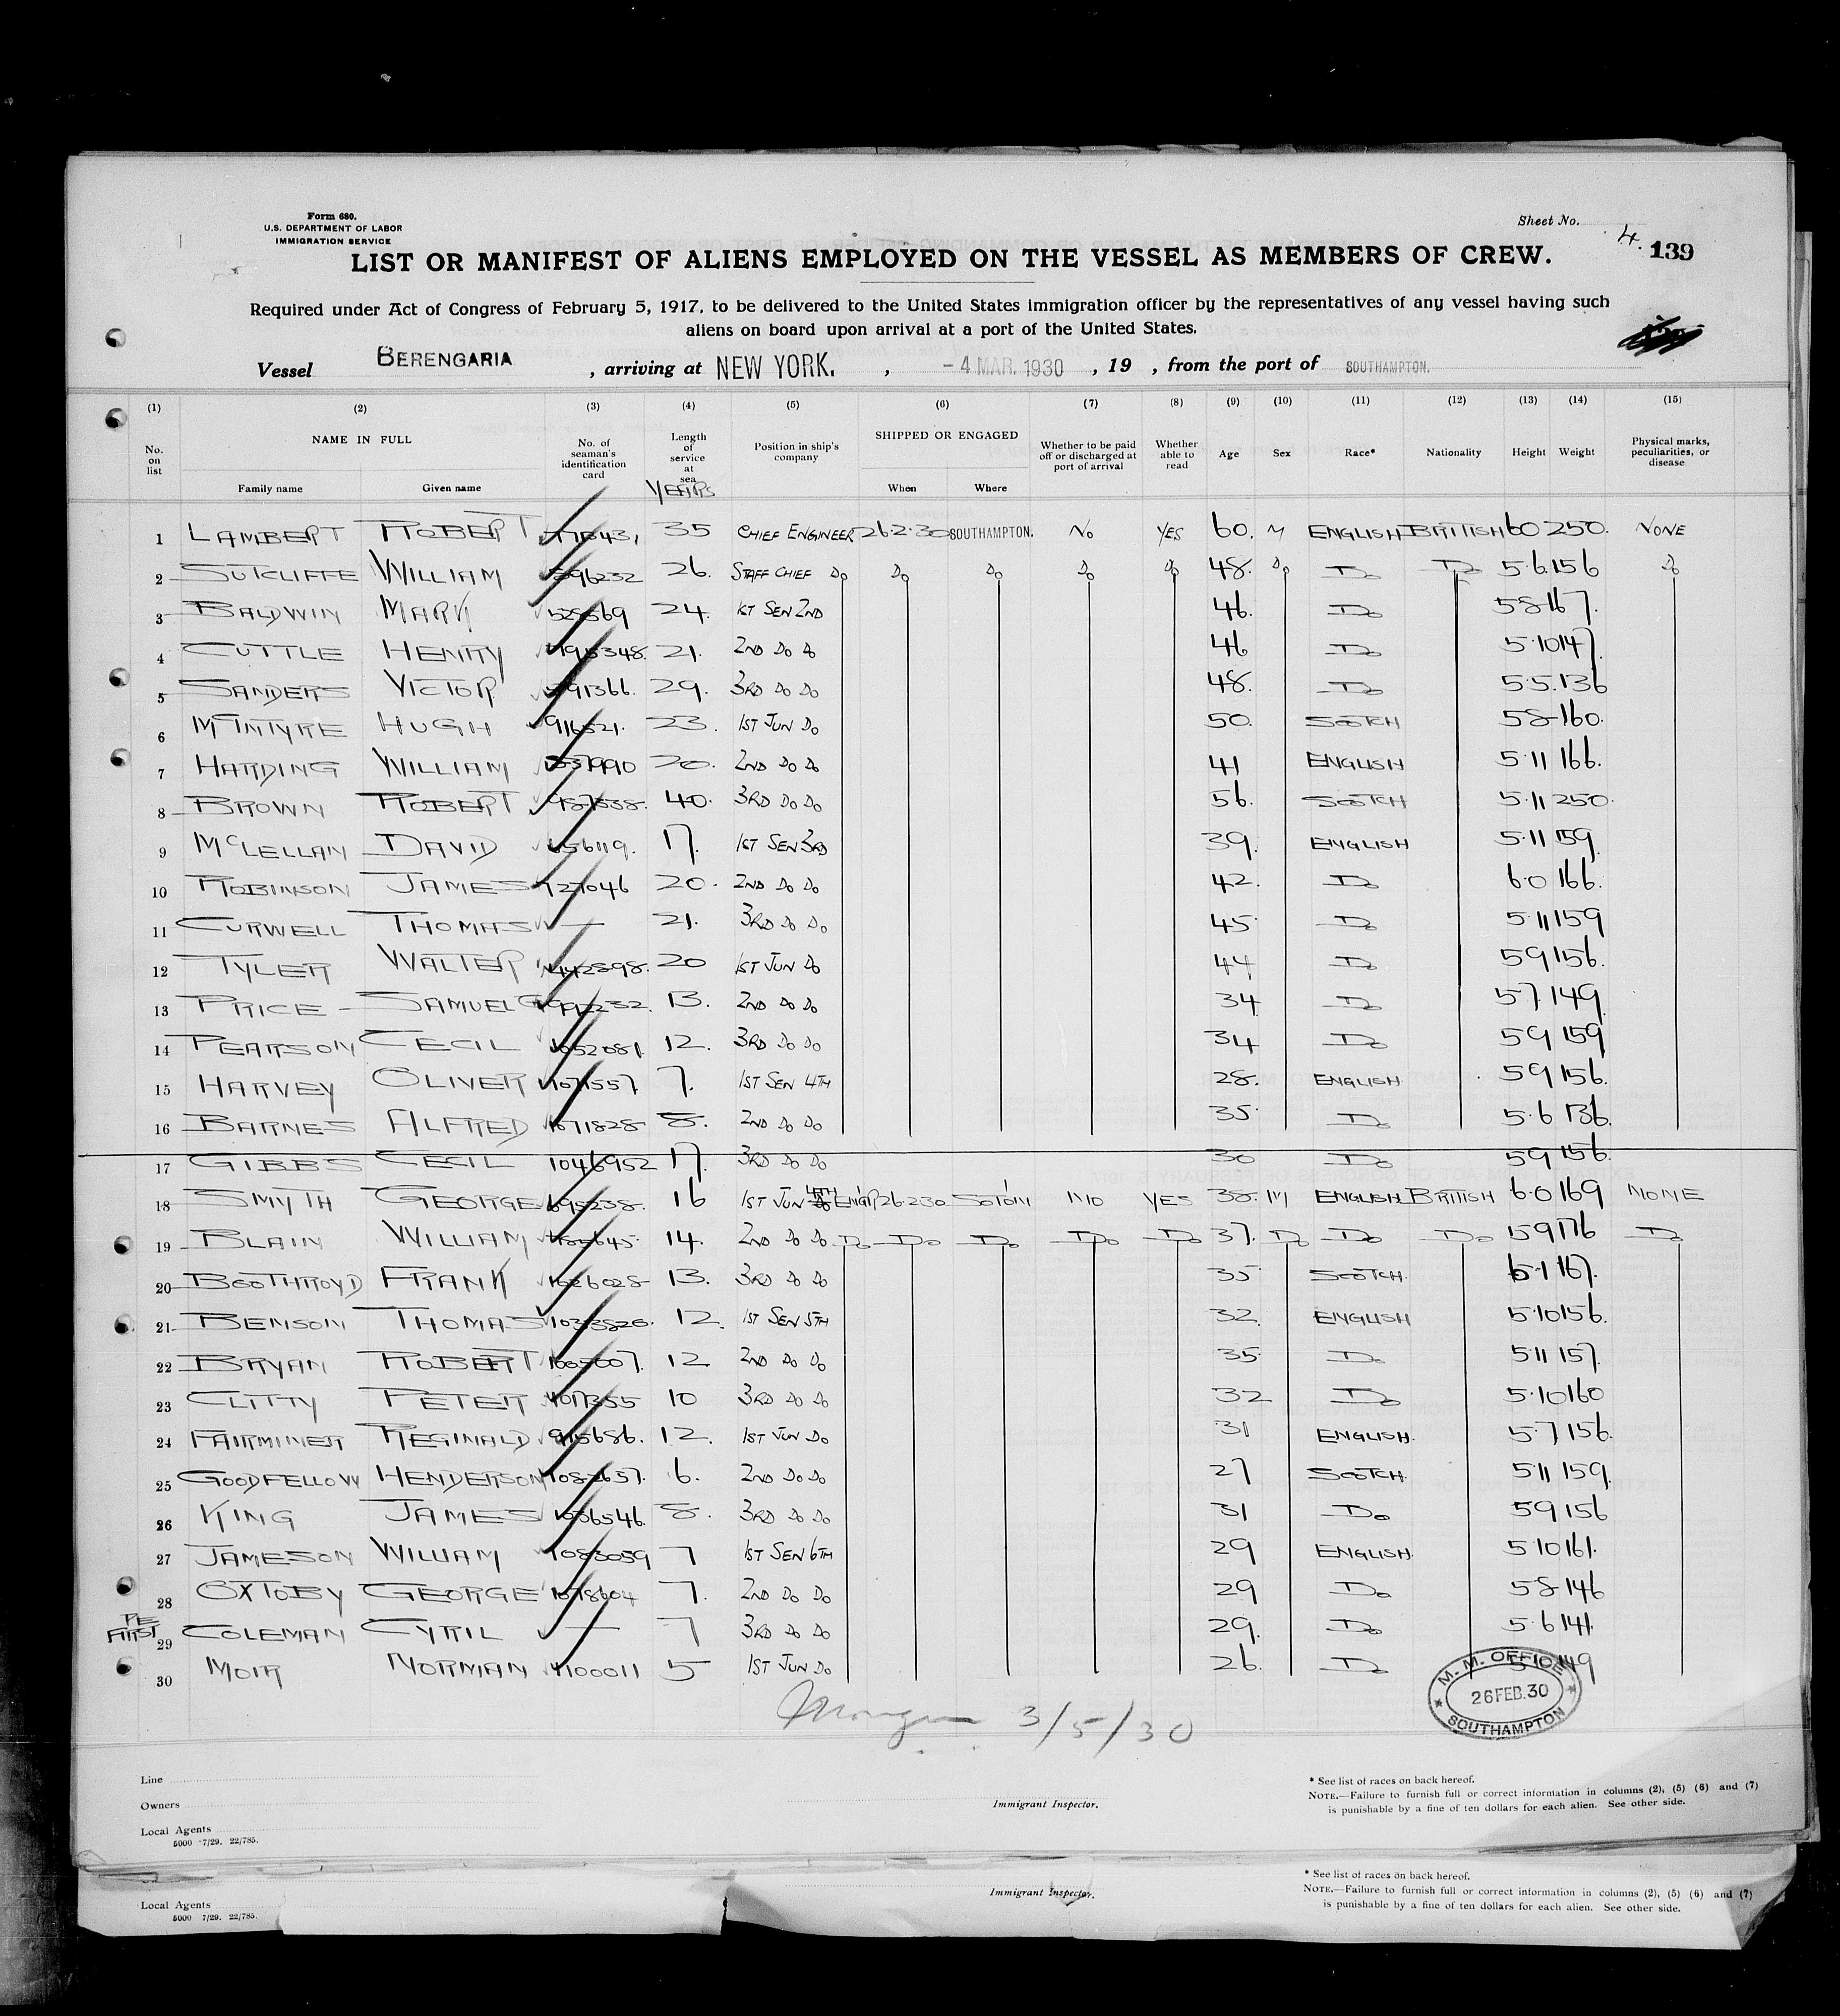 Form 680.
U.S. DEPARTMENT OF LABOR
IMMIGRATION SERVICE
Sheet No. 4.
139
LIST OR MANIFEST OF ALIENS EMPLOYED ON THE VESSEL AS MEMBERS OF CREW.
Required under Act of Congress of February 5, 1917, to be delivered to the United States immigration officer by the representatives of any vessel having such
aliens on board upon arrival at a port of the United States.
Vessel BERENGARIA , arriving at NEW YORK. , - 4 MAR. 1930 , 19 , from the port of SOUTHAMPTON.
(1) (2) (3) (4) (5) (6) (7) (8) (9) (10) (11) (12) (13) (14) (15)
No. on list NAME IN FULL Family name Given name No. of seaman's identification card Length of service at sea YEARS Position in ship's company SHIPPED OR ENGAGED When Where Whether to be paid off or discharged at port of arrival Whether able to read Age Sex Race* Nationality Height Weight Physical marks, peculiarities, or disease
1 LAMBERT ROBERT 35 CHIEF ENGINEER 26·2·30 SOUTHAMPTON. NO YES 60. M ENGLISH BRITISH 60 250. NONE
2 SUTCLIFFE WILLIAM 26. STAFF CHIEF DO DO DO DO DO 48. DO DO DO 5·6. 156 DO
3 BALDWIN MARK 24. 1ST SEN 2ND 46. DO 58 167.
4 CUTTLE HENRY 21. 2ND DO DO 46 DO 5·10 147.
5 SANDERS VICTOR 29. 3RD DO DO 48. DO 5·5. 136
6 MCINTYRE HUGH 23. 1ST JUN DO 50. SCOTCH 58 160.
7 HARDING WILLIAM 20. 2ND DO DO 41 ENGLISH 5·11 166.
8 BROWN ROBERT 40. 3RD DO DO 56. SCOTCH 5·11 250.
9 MCLELLAN DAVID 17. 1ST SEN 3RD 39. ENGLISH 5·11 159.
10 ROBINSON JAMES 20. 2ND DO DO 42. DO 6·0 166.
11 CURWELL THOMAS — 21. 3RD DO DO 45 DO 5·11 159
12 TYLER WALTER 20 1ST JUN DO 44 DO 59 156.
13 PRICE - SAMUEL G 13. 2ND DO DO 34 DO 57. 149
14 PEARSON CECIL 12. 3RD DO DO 34 DO 59 159
15 HARVEY OLIVER 7. 1ST SEN 4TH 28. ENGLISH 59 156.
16 BARNES ALFRED 1071828 8. 2ND DO DO 35 DO 5·6 136
17 GIBBS CECIL 1046952 17. 3RD DO DO 30 DO 59 156.
18 SMYTH GEORGE 16 1ST JUN 4TH ENGR 26·2·30 SOTON NO YES 38. M ENGLISH BRITISH 6·0 169 NONE
19 BLAIN WILLIAM 14. 2ND DO DO DO DO DO DO DO 37. DO DO DO 59 176 DO
20 BOOTHROYD FRANK 13. 3RD DO DO 35 SCOTCH. 167.
21 BENSON THOMAS 12. 1ST SEN 5TH 32. ENGLISH 5·10 156.
22 BRYAN ROBERT 12 2ND DO DO 35 DO 5·11 157.
23 CLITTY PETER 10 3RD DO DO 32 DO 5·10 160
24 FAIRMINER REGINALD 915686. 12. 1ST JUN DO 31 ENGLISH. 5·7 156.
25 GOODFELLOW HENDERSON 6. 2ND DO DO 27 SCOTCH. 5·11 159.
26 KING JAMES 8. 3RD DO DO 31 DO 59 156
27 JAMESON WILLIAM 1083059 7 1ST SEN 6TH 29 ENGLISH. 5·10 161.
28 OXTOBY GEORGE 7. 2ND DO DO 29 DO 58 146
RE FIRST
29 COLEMAN CYRIL — 7 3RD DO DO 29. DO 5·6 141.
30 MOIR NORMAN 1100011 5 1ST JUN DO 26. DO 149
3/5/30
M. M. OFFICE
26 FEB. 30
SOUTHAMPTON
Line
Owners
Local Agents
5000 7/29. 22/785.
Immigrant Inspector.
* See list of races on back hereof.
NOTE.—Failure to furnish full or correct information in columns (2), (5) (6) and (7)
is punishable by a fine of ten dollars for each alien. See other side.
Local Agents
5000 7/29. 22/785.
Immigrant Inspector.
* See list of races on back hereof.
NOTE.—Failure to furnish full or correct information in columns (2), (5) (6) and (7)
is punishable by a fine of ten dollars for each alien. See other side.